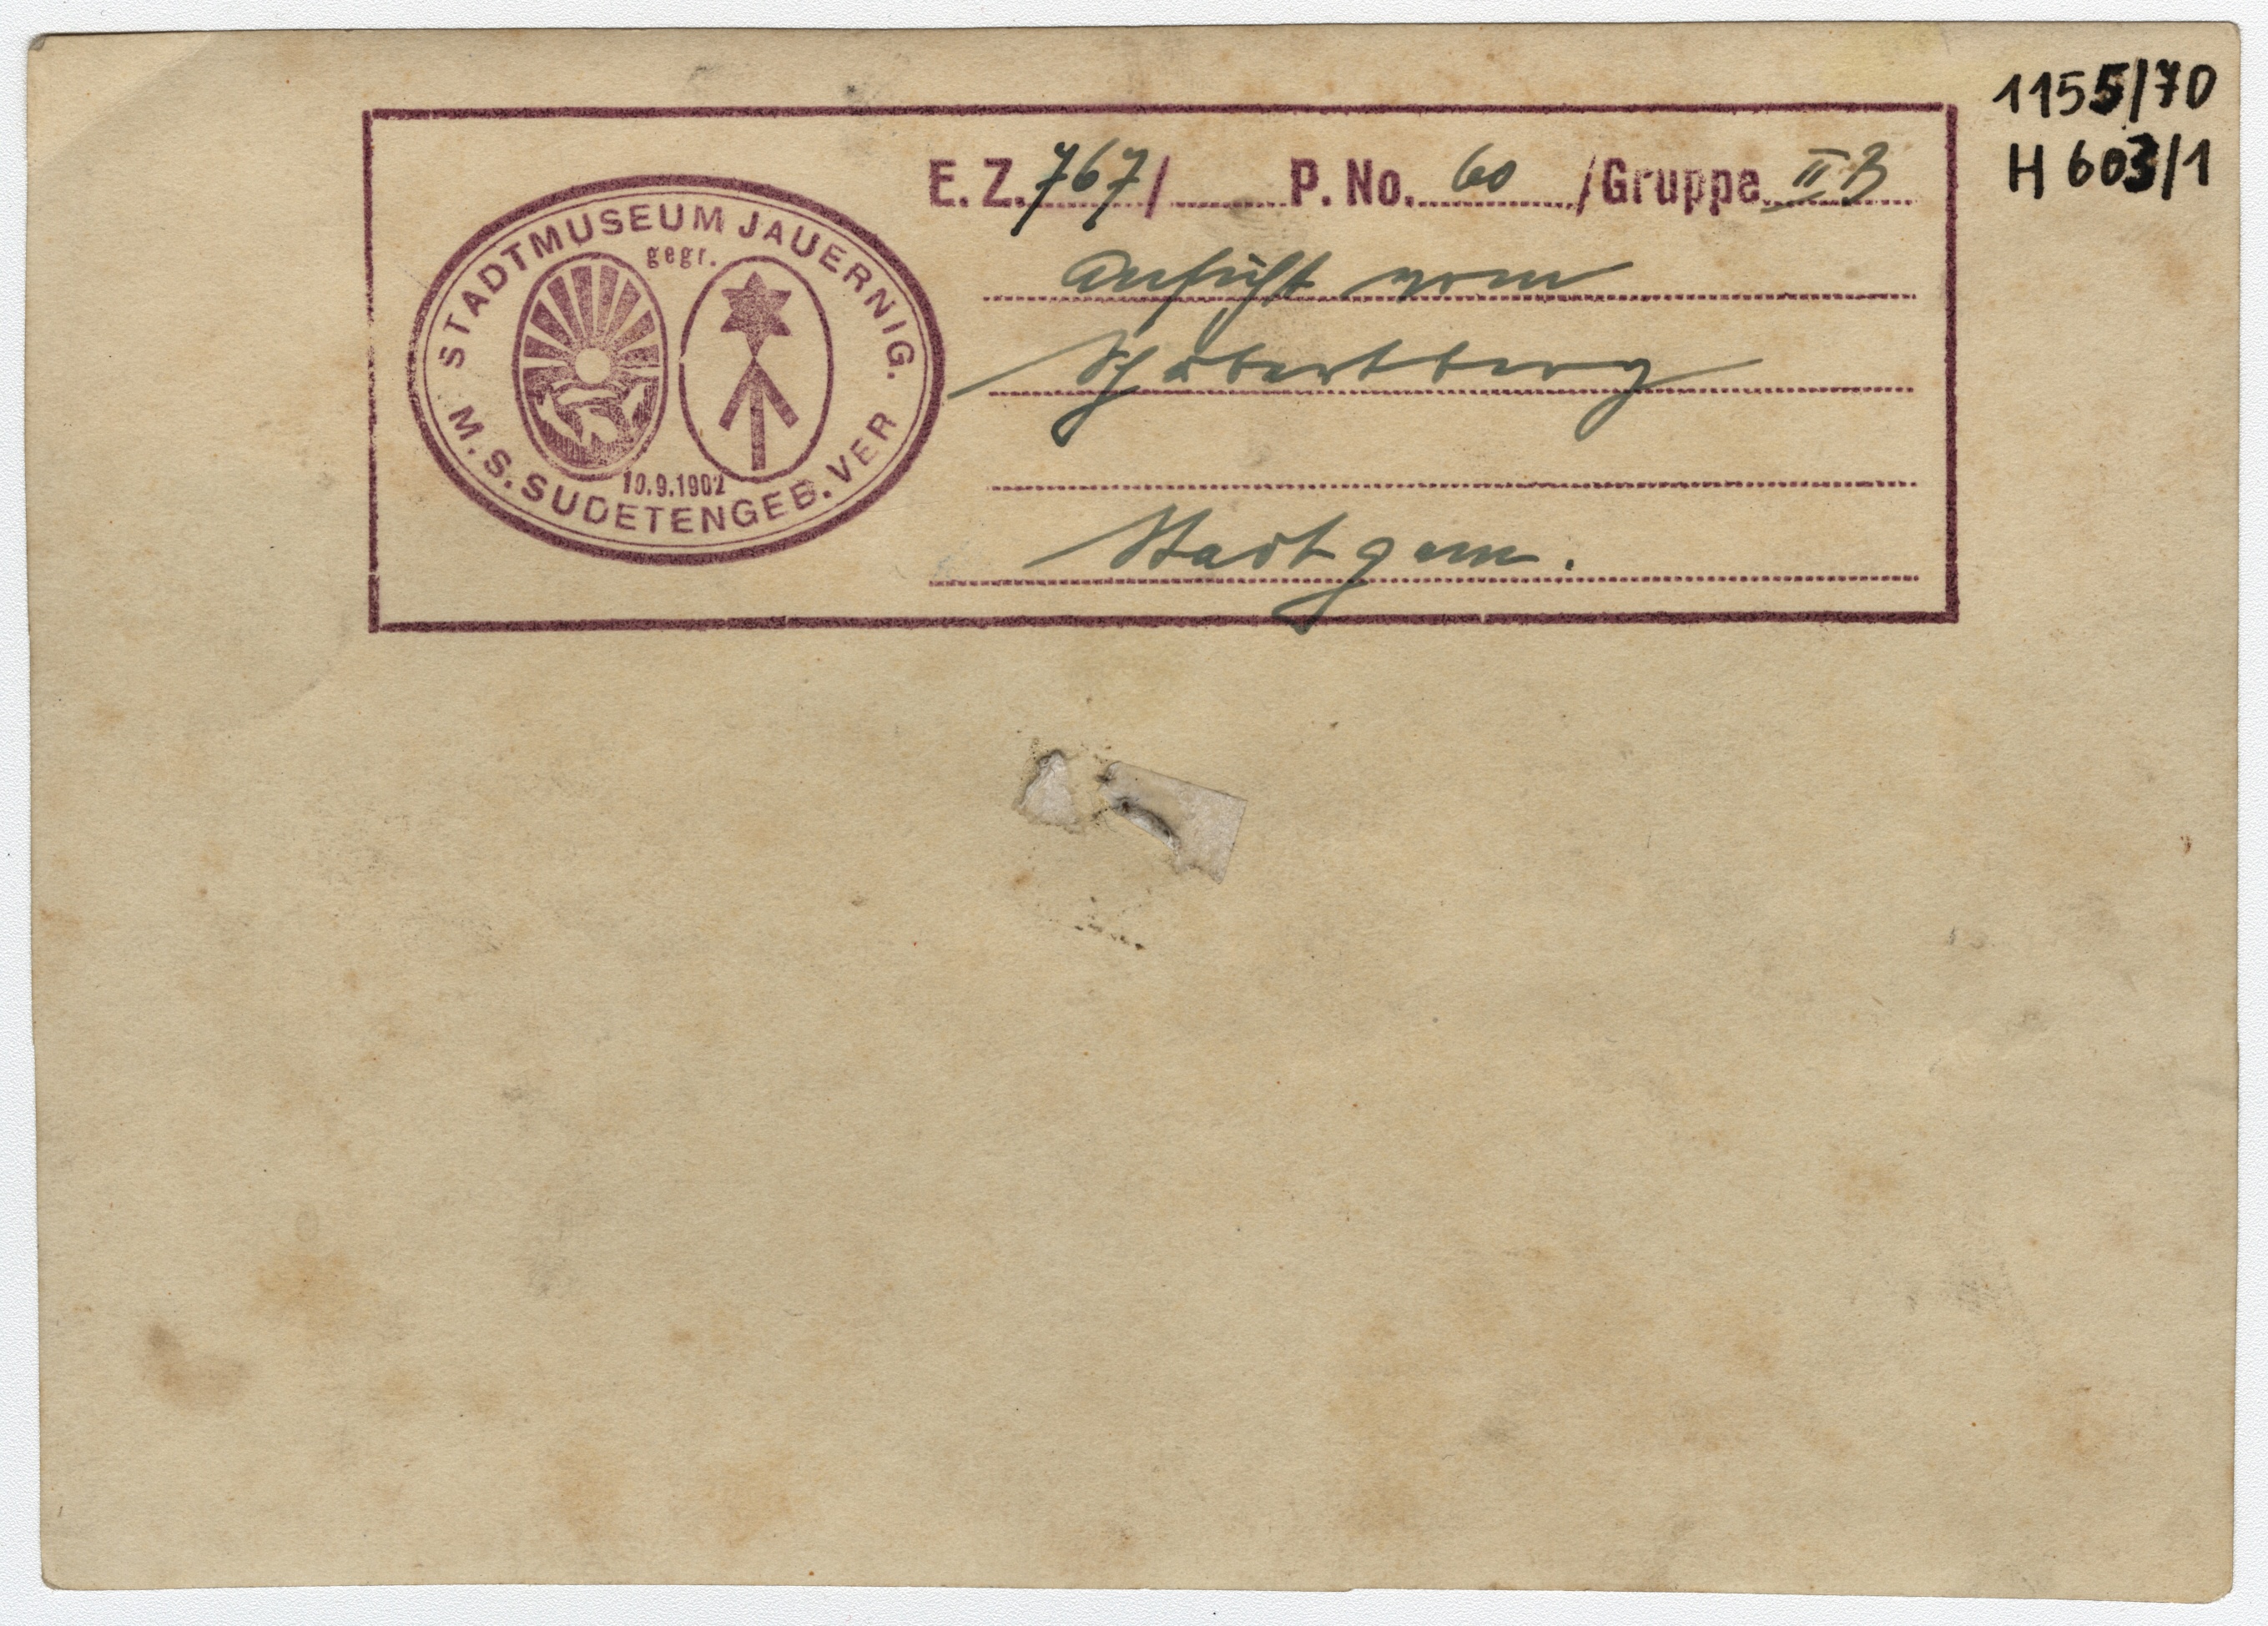 1155/70
H 603/1
E. Z. 767/ P. No. 60 /Gruppe II B
STADTMUSEUM JAUERNIG.
gegr.
10.9.1902
M. S. SUDETENGEB. VER
Ansicht vom
Schubertberg
Stadtgem.